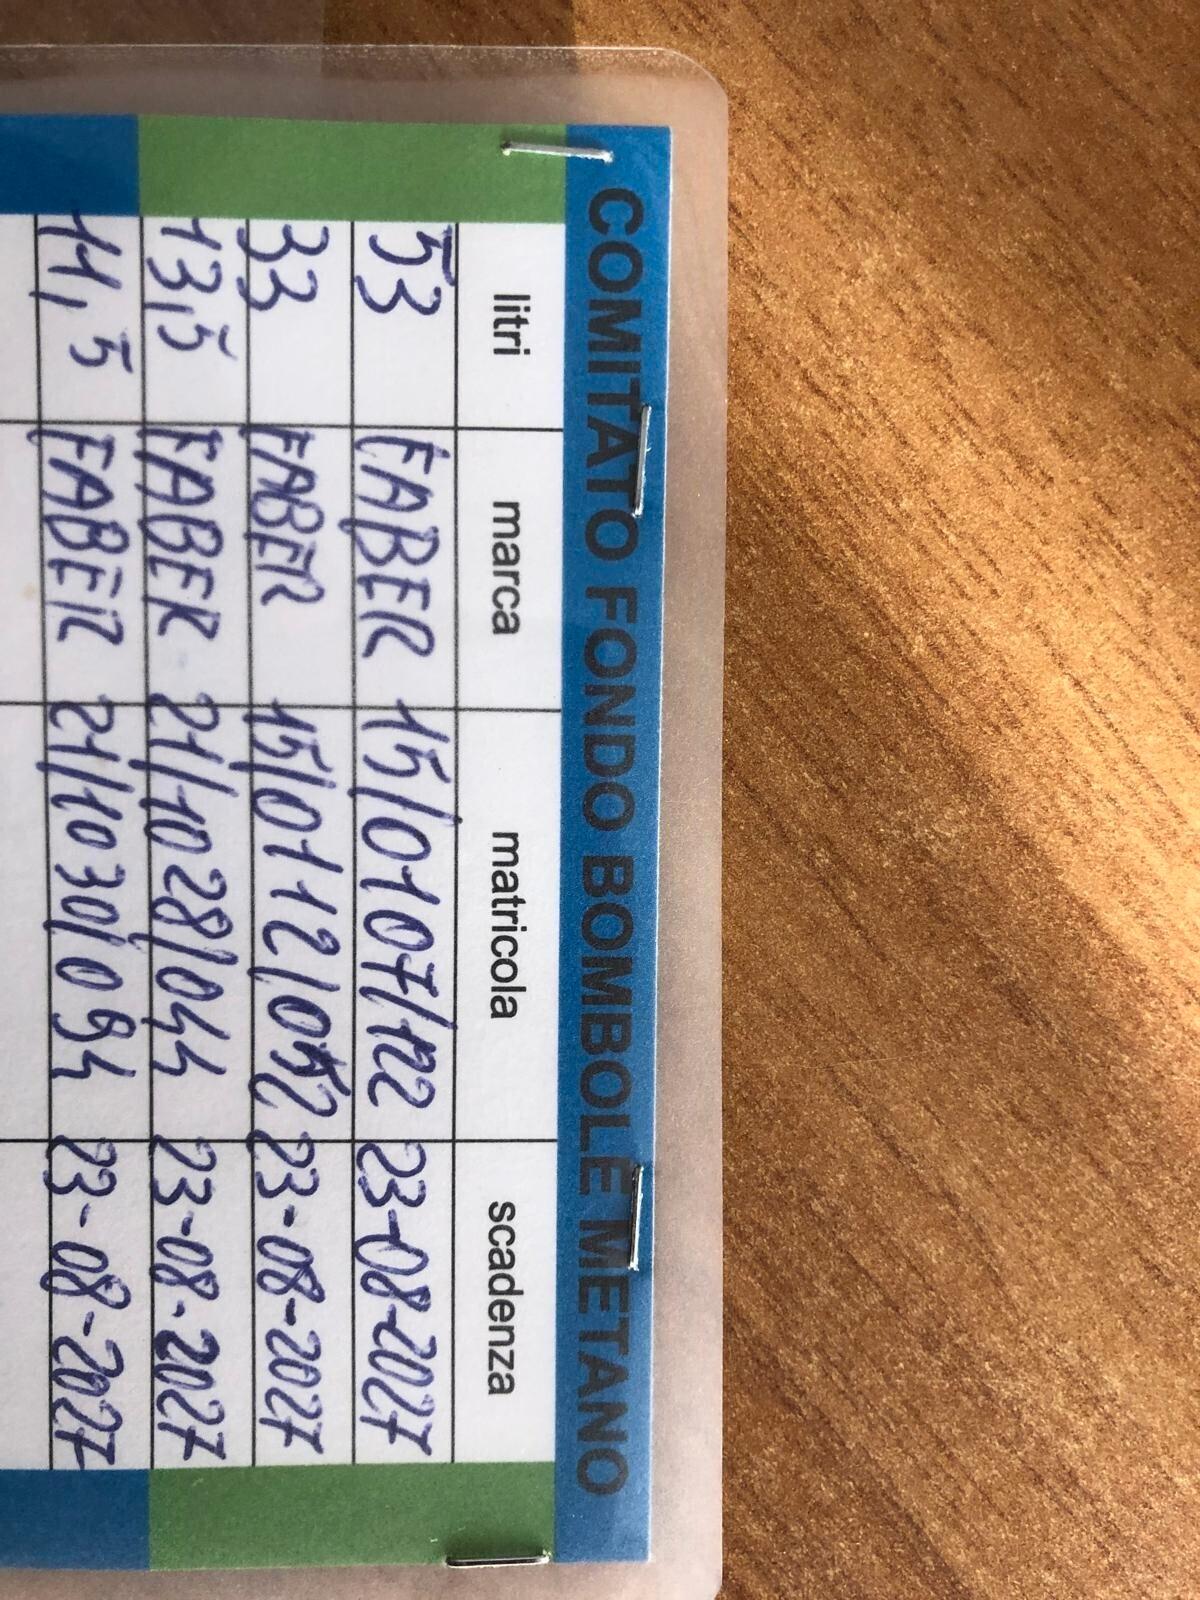 COMITATO FONDO BOMBOLE METANO
litri marca matricola scadenza
53 FABER 15/0107/122 23-08-2027
33 FABER 15/0112/052 23-08-2027
13,5 FABER 21/1028/044 23-08-2027
11,5 FABER 21/1030/094 23-08-2027